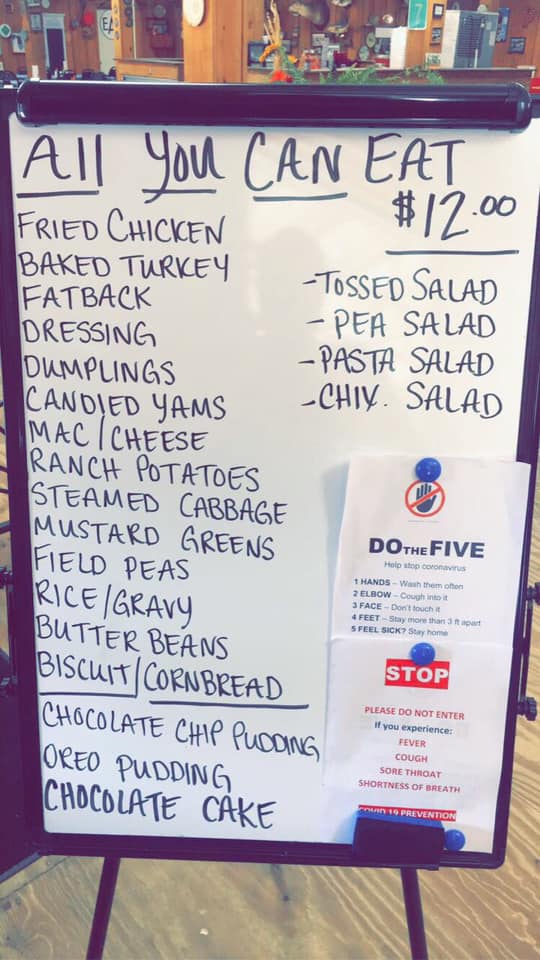 All You CAN EAT
$12.00
FRIED CHICKEN
BAKED TURKEY
FATBACK
DRESSING
DUMPLINGS
CANDIED YAMS
MAC/CHEESE
RANCH POTATOES
STEAMED CABBAGE
MUSTARD GREENS
FIELD PEAS
RICE/GRAVY
BUTTER BEANS
BISCUIT/CORNBREAD
CHOCOLATE CHIP PUDDING
OREO PUDDING
CHOCOLATE CAKE
-TOSSED SALAD
- PEA SALAD
-PASTA SALAD
-CHIX. SALAD
DO THE FIVE
Help stop coronavirus
1 HANDS - Wash them often
2 ELBOW - Cough into it
3 FACE - Don't touch it
4 FEET - Stay more than 3 ft apart
5 FEEL SICK? Stay home
STOP
PLEASE DO NOT ENTER
If you experience:
FEVER
COUGH
SORE THROAT
SHORTNESS OF BREATH
COVID 19 PREVENTION